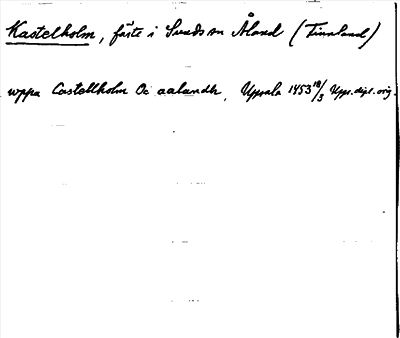 Kastelholm, fäste i Sunds sn Åland (Finnland)
uppa Castellholm Oc aalandh, Uppsala 1453 18/3 Upps. dipl. orig.